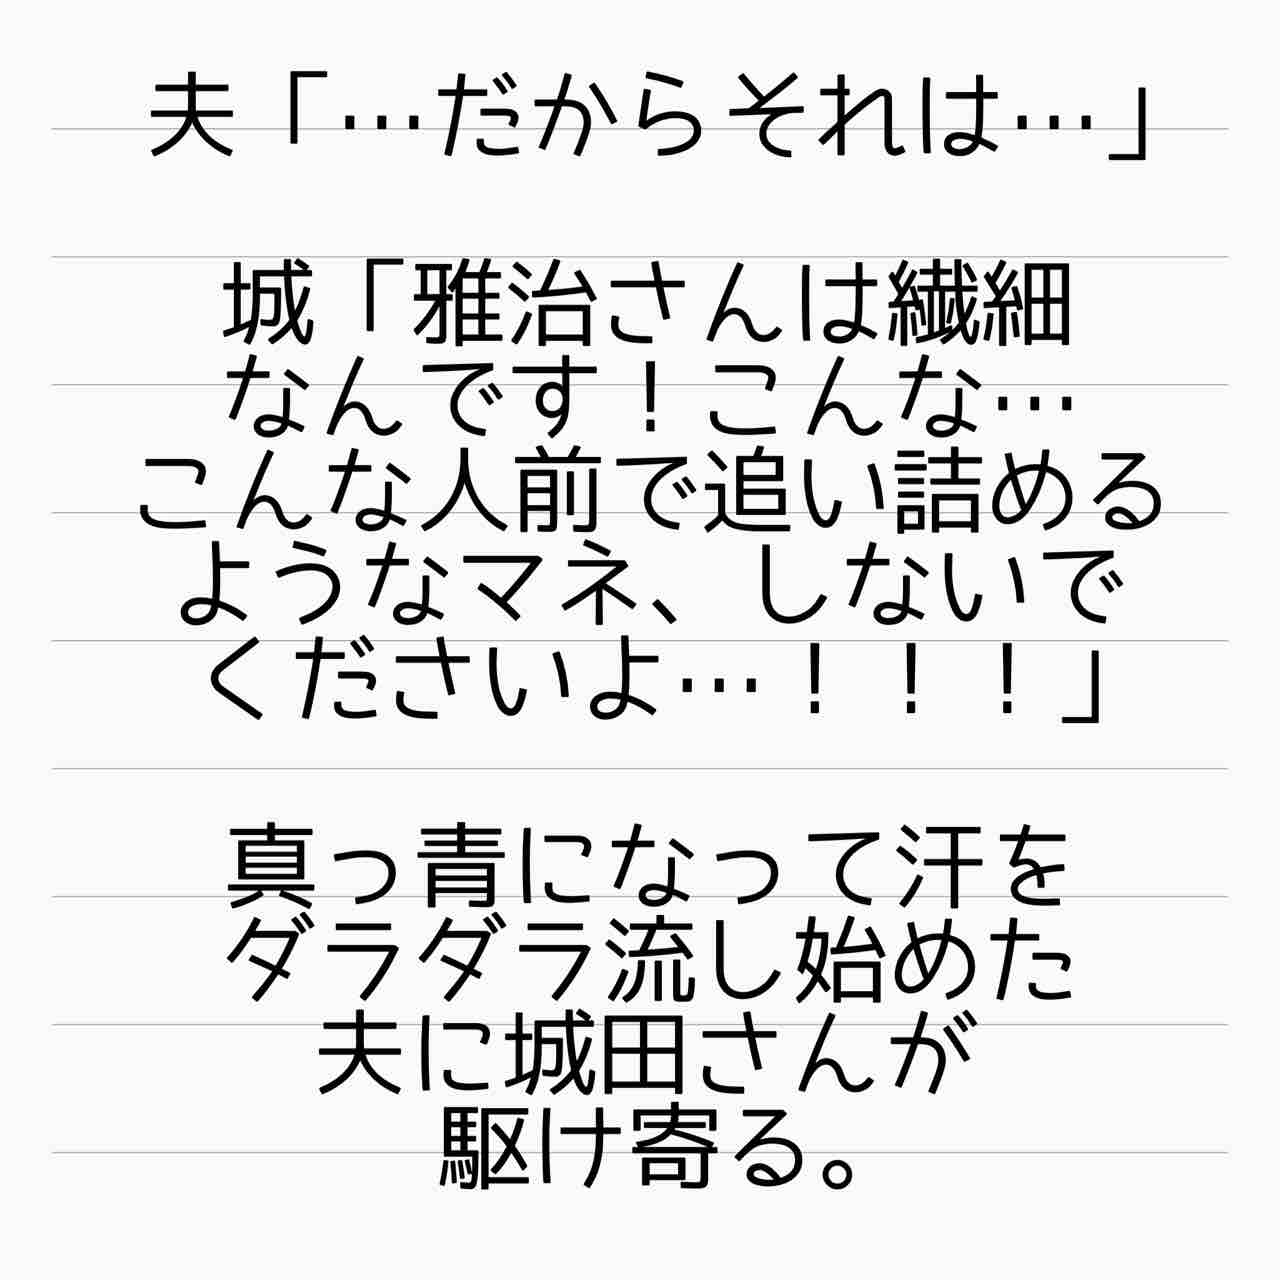 夫「…だからそれは…」
城「雅治さんは繊細
なんです！こんな…
こんな人前で追い詰める
ようなマネ、しないで
くださいよ…！！！」
真っ青になって汗を
ダラダラ流し始めた
夫に城田さんが
駆け寄る。